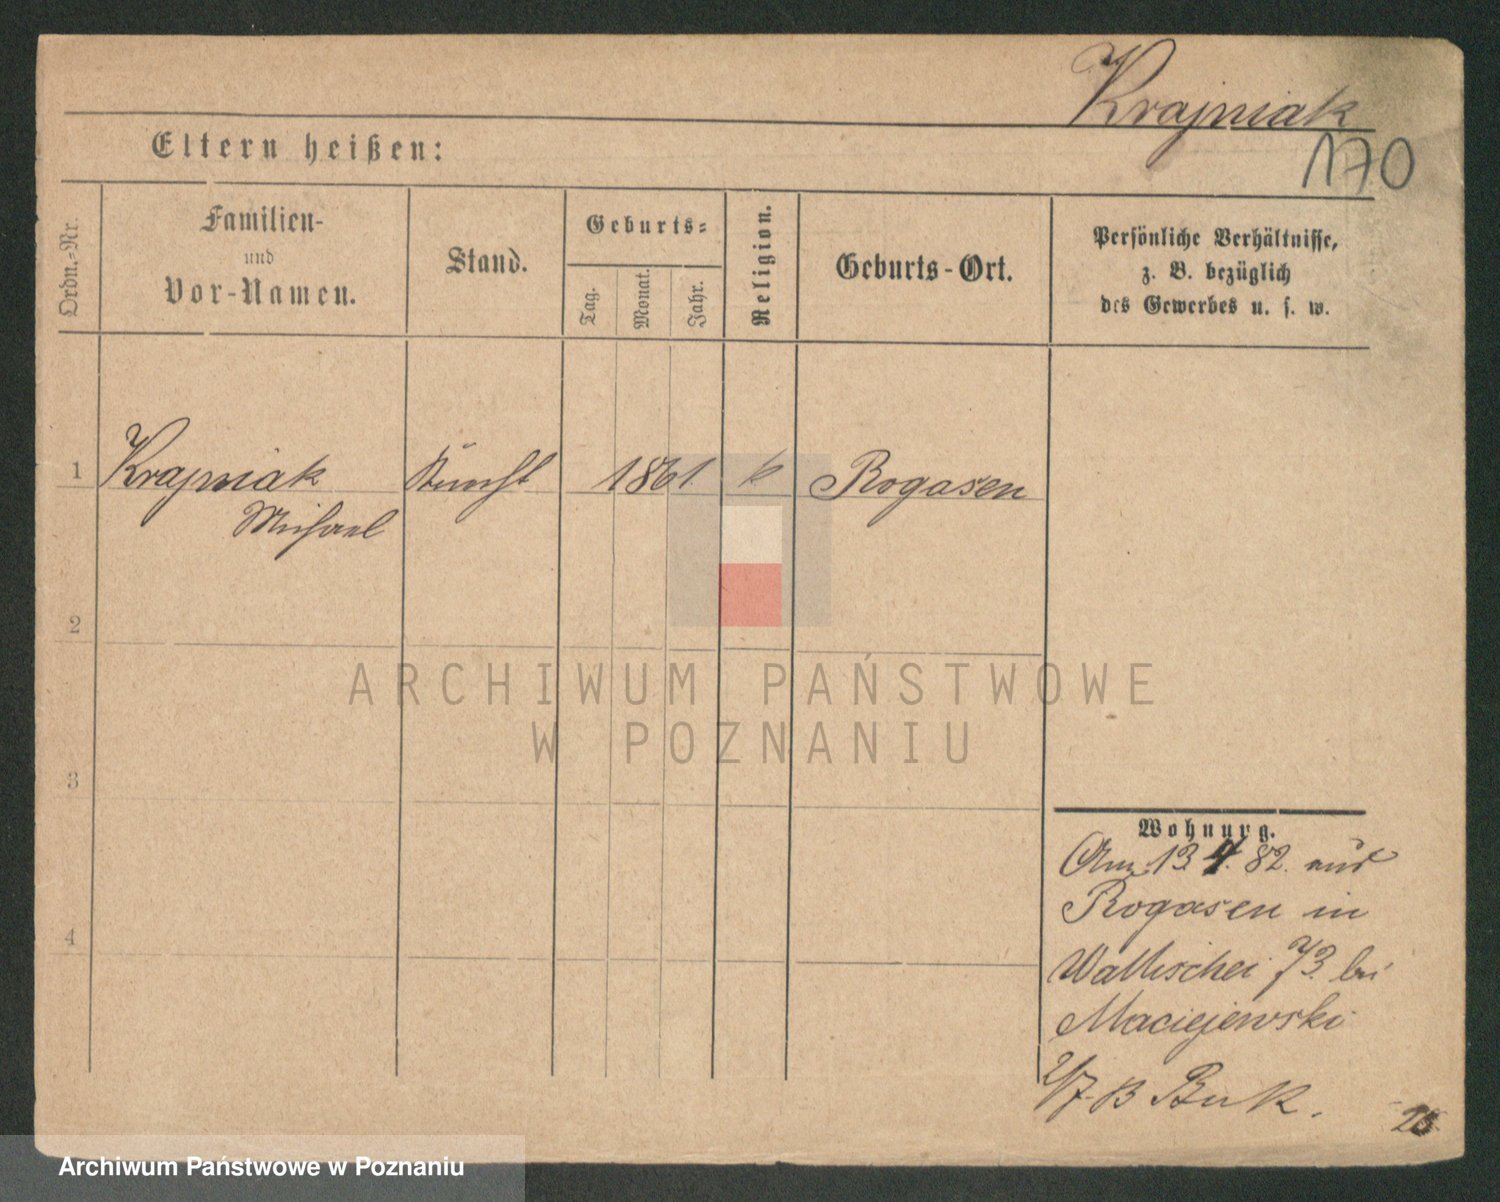 Krajniak
170
Eltern heißen:
Ordn.-Nr.
Familien-
und
Vor-Namen.
Stand.
Geburts-
Tag.
Monat.
Jahr.
Religion.
Geburts-Ort.
Persönliche Verhältnisse,
z. B. bezüglich
des Gewerbes u. s. w.
1 Krajniak 1861 k Rogasen
Michael
2
3
4
ARCHIWUM PAŃSTWOWE
W POZNANIU
Wohnung.
Am 13 4. 82. aus
Rogasen in
Wallischei 73. bei
Maciejewski
2/7. B Buk.
25
Archiwum Państwowe w Poznaniu